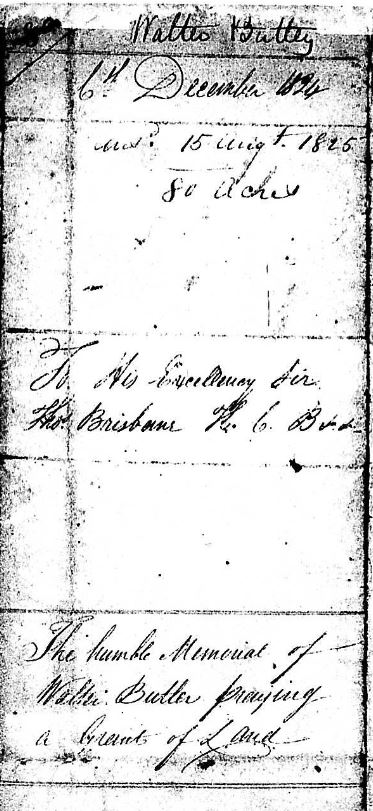 Walter Butler
6th December 1824
ansd. 15 Augt. 1825
80 Acres
To His Excellency Sir
Thos. Brisbane K. C. B &c
The humble Memorial of
Walter Butler praying
a Grant of Land